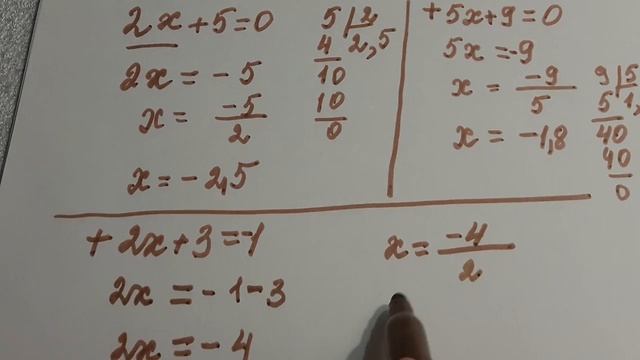 2x+5=0
2x = -5
x = -5/2
x = -2,5
5 | 2
4 2,5
10
10
0
+5x+9=0
5x=-9
x = -9/5
x = -1,8
9 | 5
5 1,
40
40
0
+2x+3=-1
2x = -1-3
2x = -4
x = -4/2